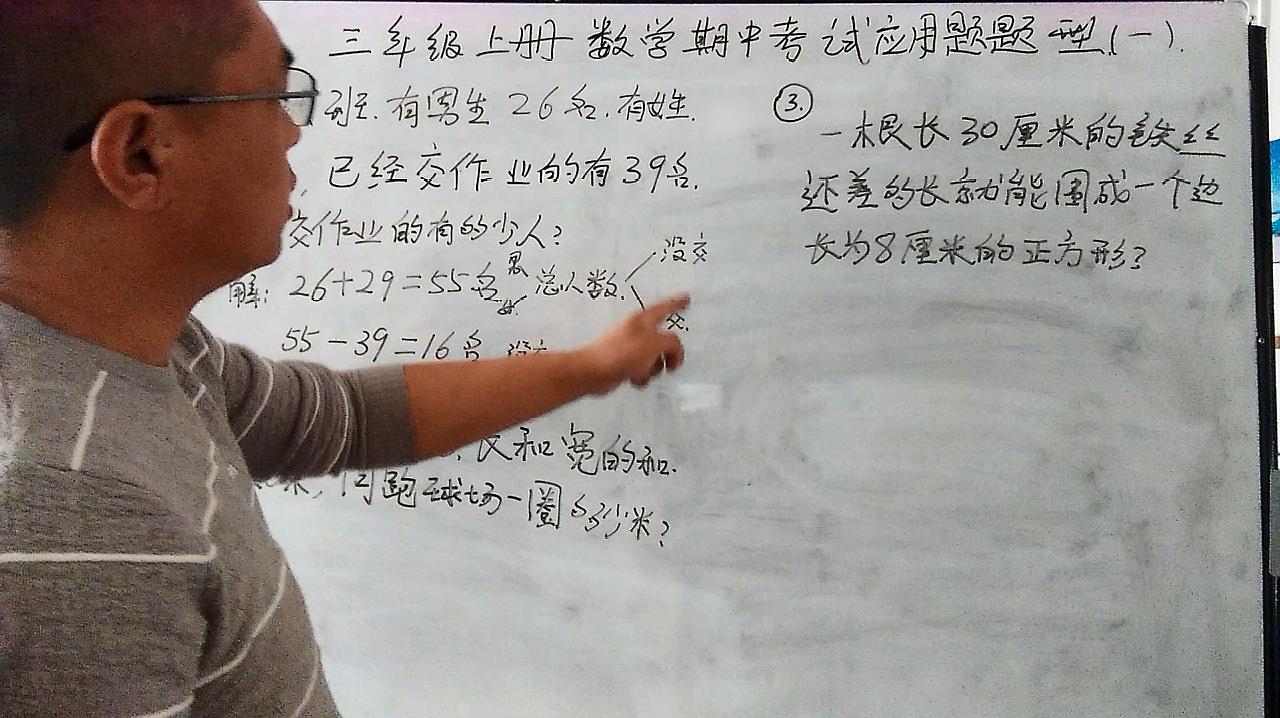 三年级上册数学期中考试应用题题型(一).
班.有男生26名.有女生.
,已经交作业的有39名.
交作业的有的少人?
解: 26+29=55名 男 女 总人数. 没交 交.
55-39=16名 没交
,长和宽的和.
米,问跑球场一圈多少米?
③.
一根长30厘米的铁丝
还差的长就能围成一个边
长为8厘米的正方形?